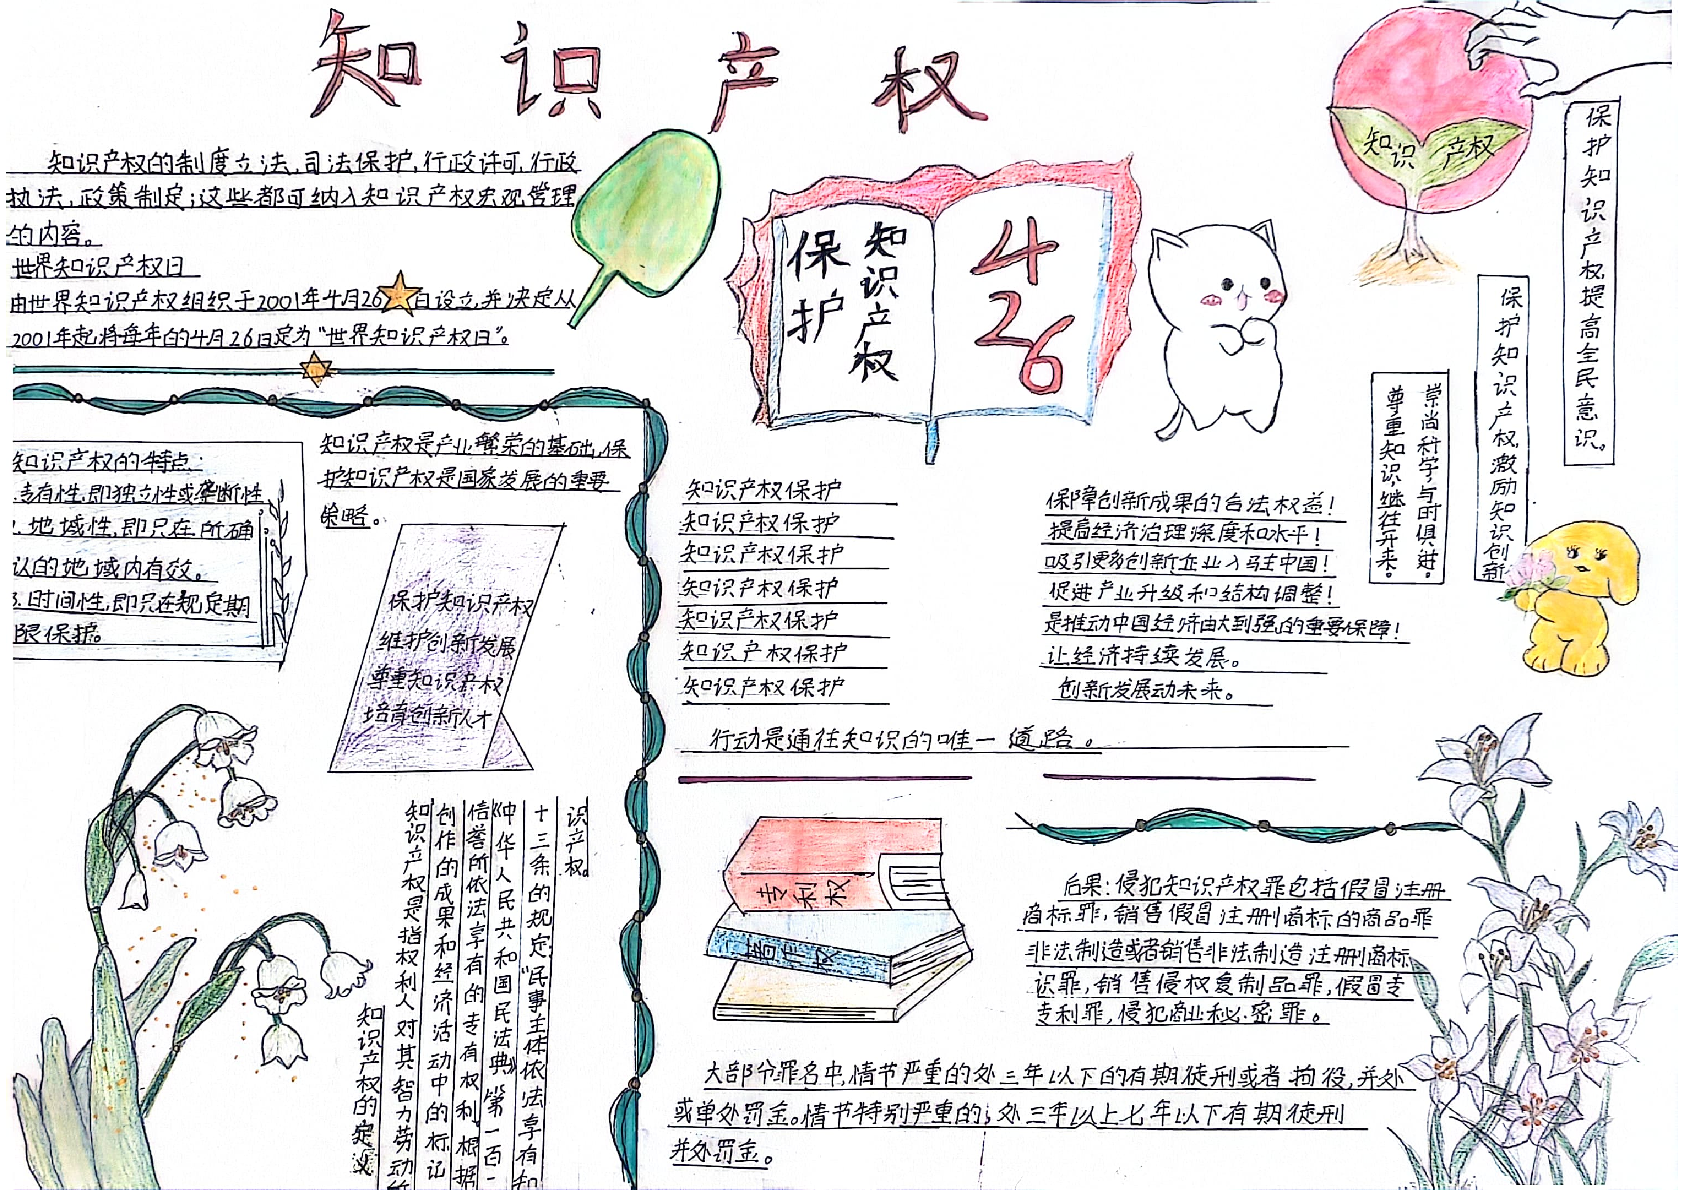 知识产权
知识产权的制度立法,司法保护,行政许可,行政
执法,政策制定;这些都可纳入知识产权宏观管理
的内容。
世界知识产权日
由世界知识产权组织于2001年4月26日设立,并决定从
2001年起将每年的4月26日定为“世界知识产权日”。
知识产权的特点:
.专有性,即独立性或垄断性
2.地域性,即只在所确
认的地域内有效。
3.时间性,即只在规定期
限保护。
知识产权是产业繁荣的基础,保
护知识产权是国家发展的重要
策略。
保护知识产权
维护创新发展
尊重知识产权
培育创新人才
知识产权的定义
知识产权是指权利人对其智力劳动所
创作的成果和经济活动中的标记
信誉所依法享有的专有权利,根据
《中华人民共和国民法典》第一百二
十三条的规定:“民事主体依法享有知
识产权。
保护
知识产权
4
26
知识 产权
保护知识产权,提高全民意识。
保护知识产权,激励知识创新
崇尚科学,与时俱进。
尊重知识,继往开来。
知识产权保护
知识产权保护
知识产权保护
知识产权保护
知识产权保护
知识产权保护
知识产权保护
保障创新成果的合法权益!
提高经济治理深度和水平!
吸引更多创新企业入驻中国!
促进产业升级和结构调整!
是推动中国经济由大到强的重要保障!
让经济持续发展。
创新发展动未来。
行动是通往知识的唯一道路。
专利权
著作权
后果:侵犯知识产权罪包括假冒注册
商标罪,销售假冒注册商标的商品罪
非法制造或者销售非法制造注册商标
识罪,销售侵权复制品罪,假冒专
专利罪,侵犯商业秘密罪。
大部分罪名中,情节严重的处三年以下的有期徒刑或者拘役,并处
或单处罚金。情节特别严重的;处三年以上七年以下有期徒刑
并处罚金。